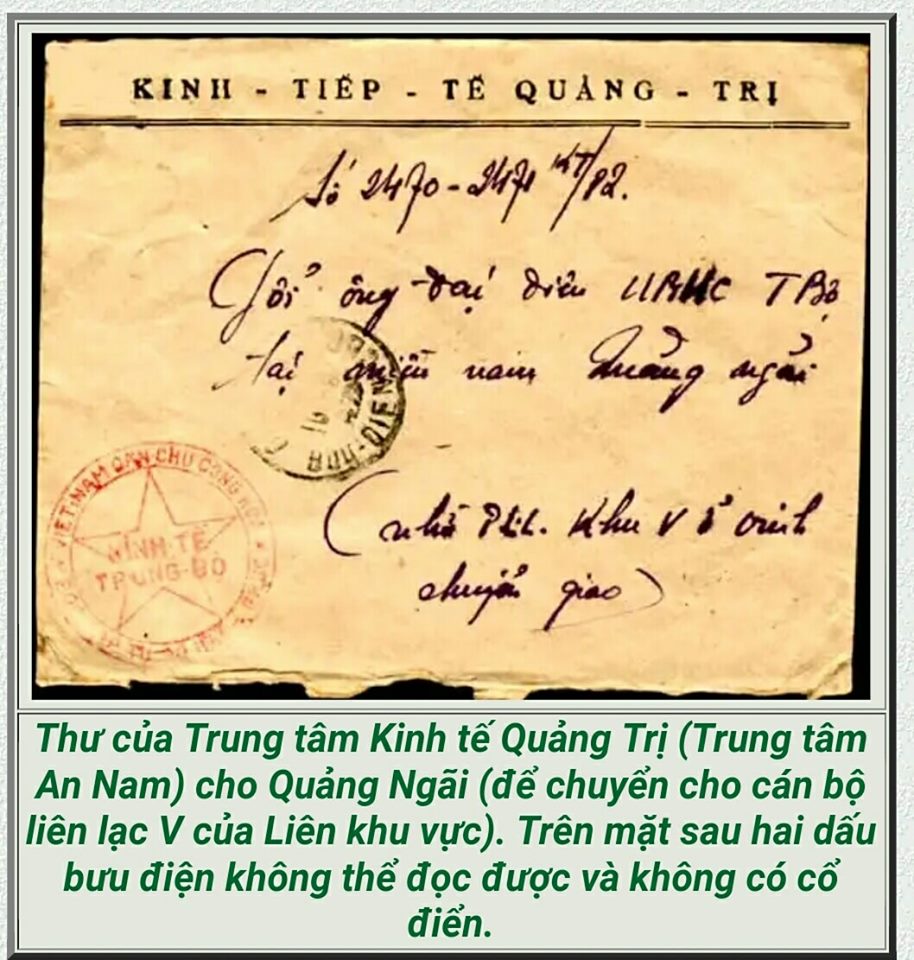 KINH - TIẾP - TẾ QUẢNG - TRỊ
Số 2470-2471 KT/P2.
Gởi ông đại diên UBHC TBộ
tại miền nam Quảng ngãi
BUU-DIEN
VIET-NAM DAN CHU CONG HOA
KINH TẾ
TRUNG-BỘ
(nhờ Khu V ở
chuyển giao)
Thư của Trung tâm Kinh tế Quảng Trị (Trung tâm
An Nam) cho Quảng Ngãi (để chuyển cho cán bộ
liên lạc V của Liên khu vực). Trên mặt sau hai dấu
bưu điện không thể đọc được và không có cổ
điển.